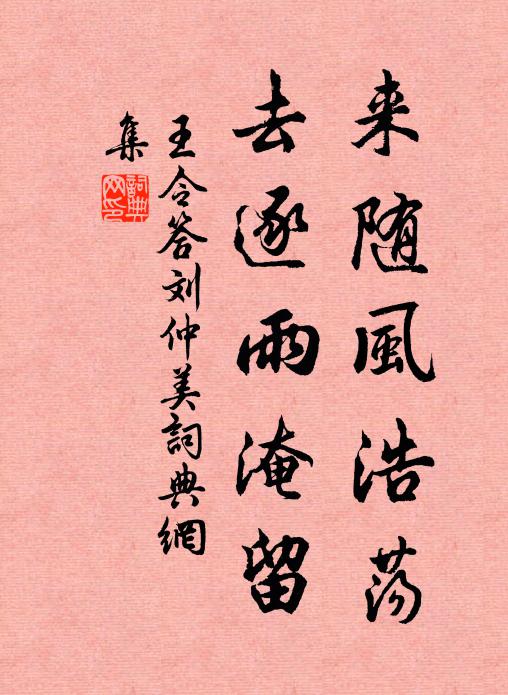 来随風浩荡
去逐雨淹留
王令答刘仲美詞典網
集
詞典
网印